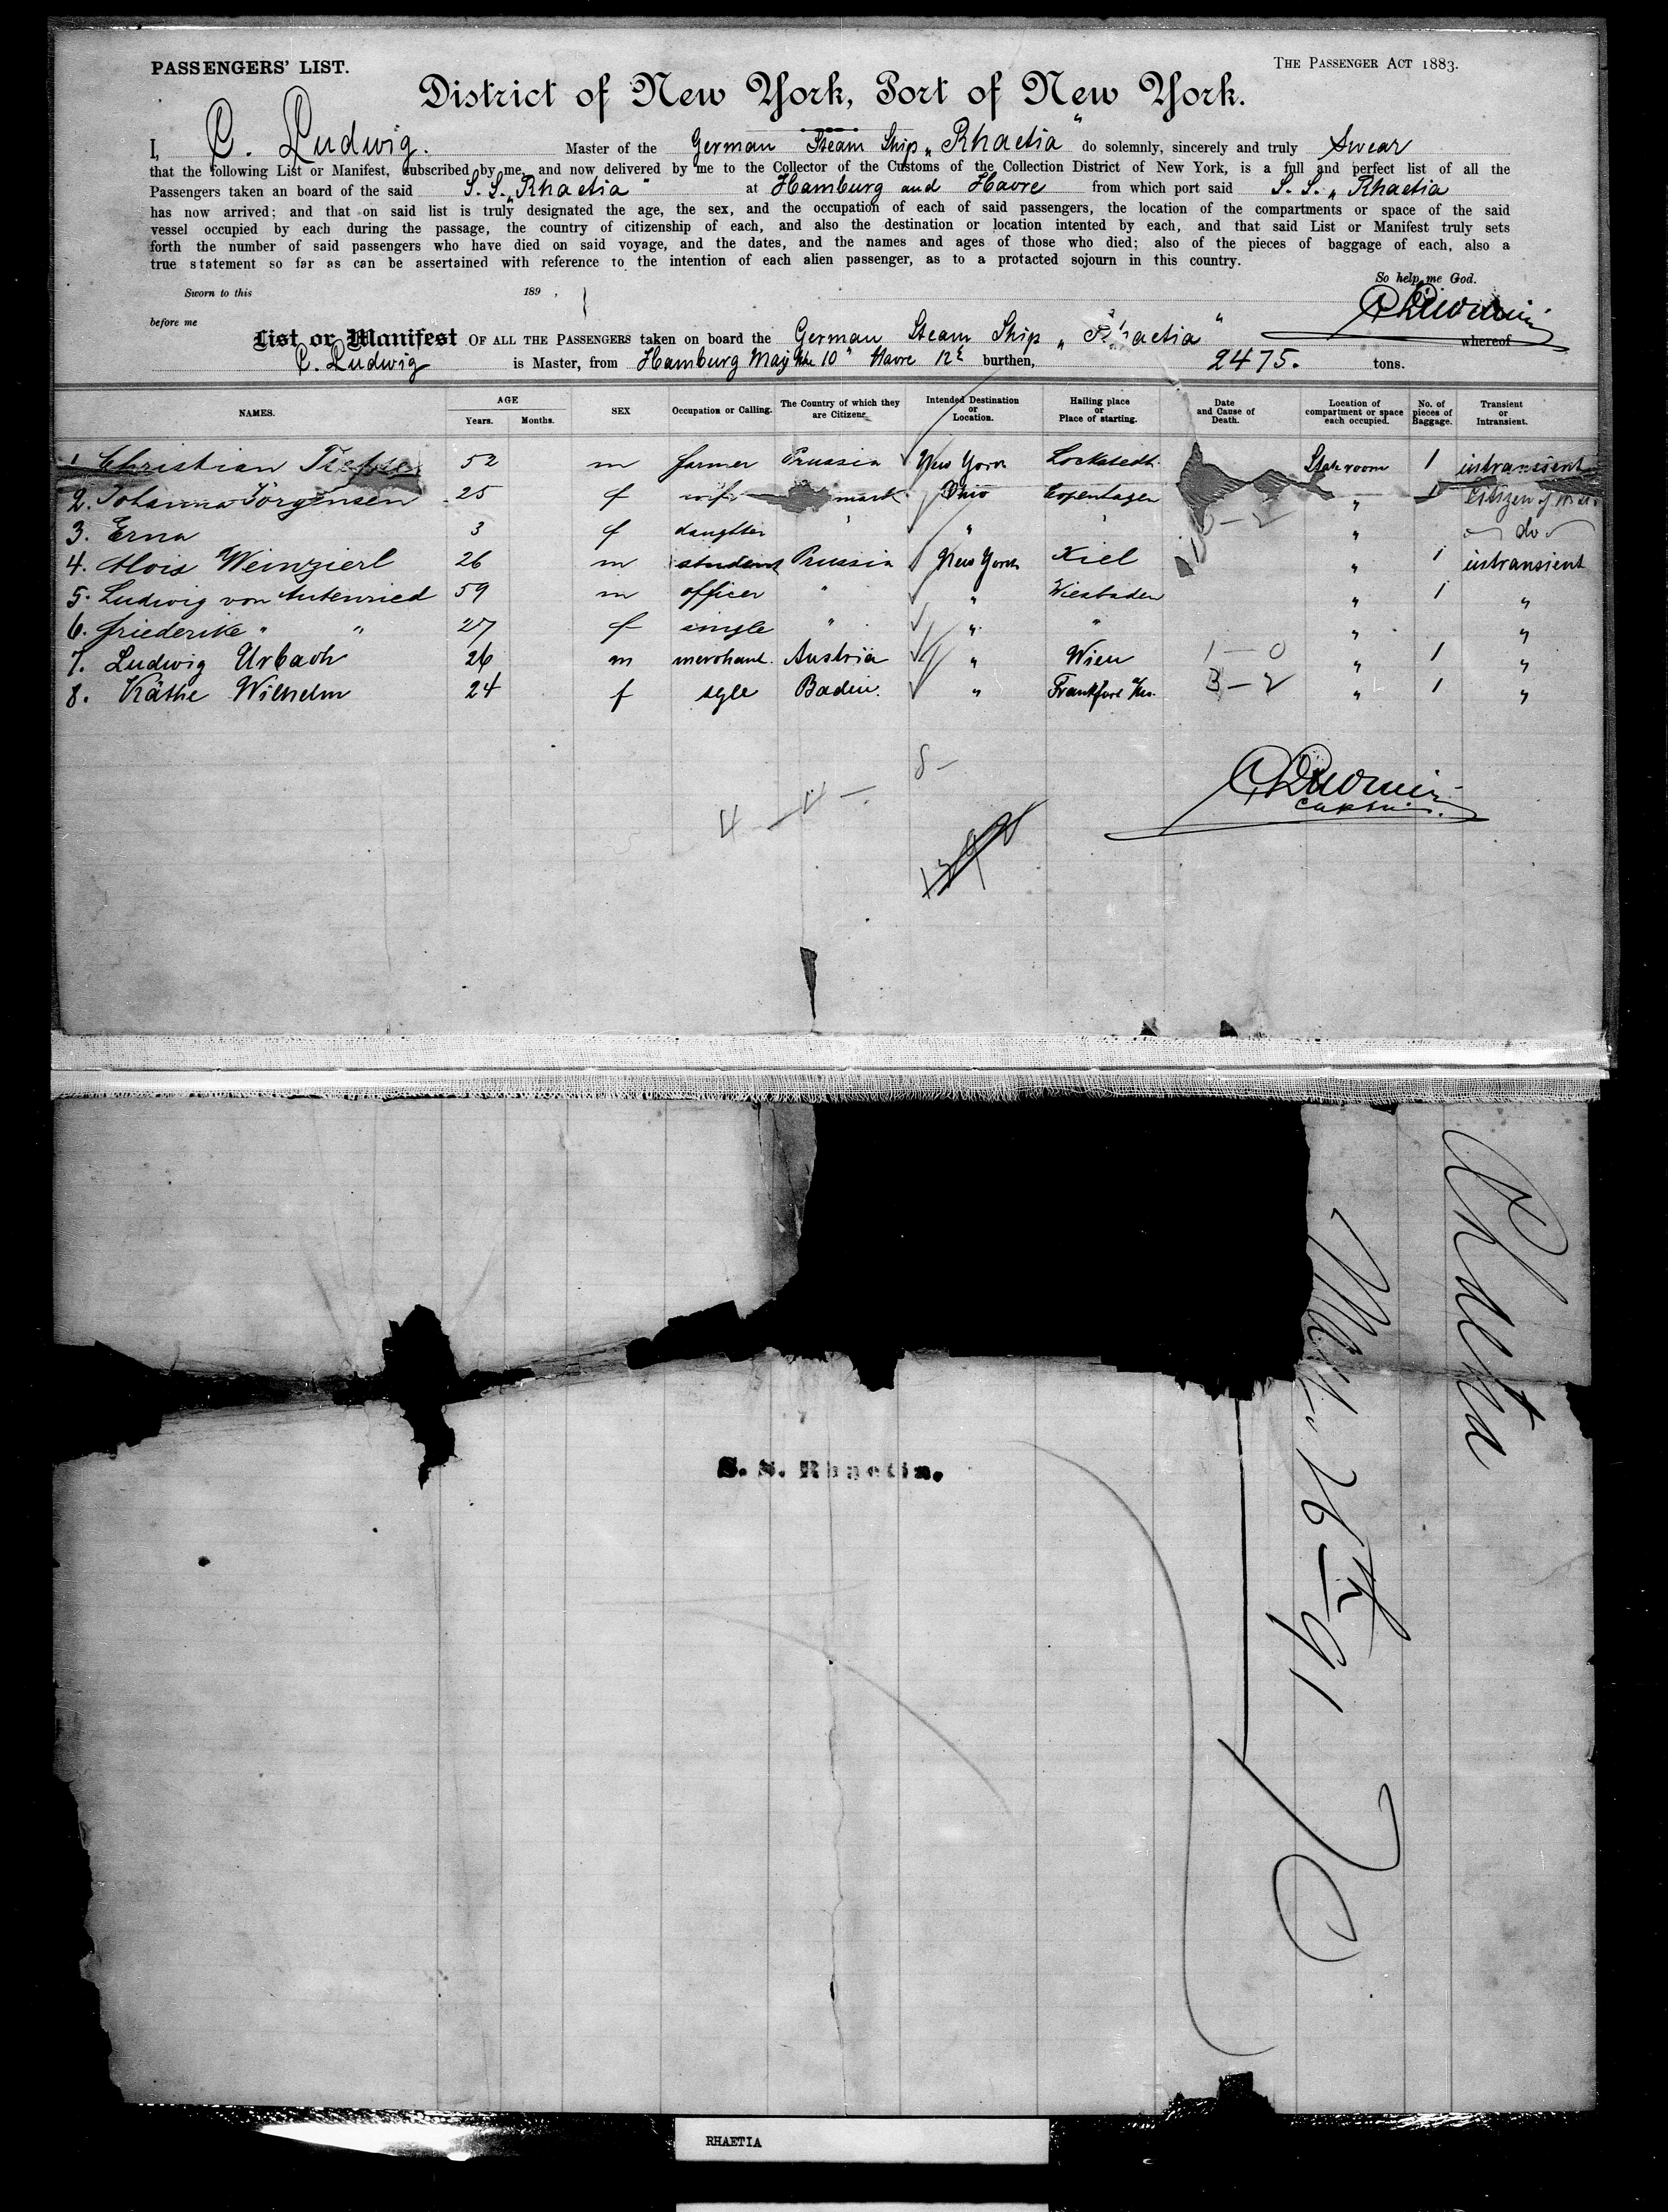 PASSENGERS' LIST.
THE PASSENGER ACT 1883.
District of New York, Port of New York.
I, C. Ludwig. Master of the German Steam Ship „Rhaetia" do solemnly, sincerely and truly Swear
that the following List or Manifest, subscribed by me, and now delivered by me to the Collector of the Customs of the Collection District of New York, is a full and perfect list of all the
Passengers taken an board of the said S. S. „Rhaetia" at Hamburg and Havre from which port said S. S. „Rhaetia
has now arrived; and that on said list is truly designated the age, the sex, and the occupation of each of said passengers, the location of the compartments or space of the said
vessel occupied by each during the passage, the country of citizenship of each, and also the destination or location intented by each, and that said List or Manifest truly sets
forth the number of said passengers who have died on said voyage, and the dates, and the names and ages of those who died; also of the pieces of baggage of each, also a
true statement so far as can be assertained with reference to the intention of each alien passenger, as to a protacted sojourn in this country.
So help me God.
Sworn to this 189 ,
before me
List or Manifest OF ALL THE PASSENGERS taken on board the German Steam Ship „Rhaetia" whereof
C. Ludwig is Master, from Hamburg May the 10" Havre 12t burthen, 2475. tons.
NAMES. AGE Years. Months. SEX Occupation or Calling. The Country of which they are Citizens. Intended Destination or Location. Hailing place or Place of starting. Date and Cause of Death. Location of compartment or space each occupied. No. of pieces of Baggage. Transient or Intransient.
1 Christian 52 m farmer Prussia New York Lockstedt Stateroom 1 intransient
2. Johanna Jörgensen 25 f wife mark Ohio Copenhagen " 1 Citizen of
3. Erna 3 f daughter " " " " do
4. Alois Weinzierl 26 m student Prussia New York Kiel " 1 intransient
5. Ludwig von Autenried 59 m officer " " Wiesbaden " 1 "
6. Friederike " " 27 f single " " " " "
7. Ludwig Urbach 26 m merchant. Austria " Wien 1 — 0 " 1 "
8. Käthe Wilhelm 24 f sgle Baden. " Frankfurt a/m. 3 — 2 " 1 "
8 —
4 — 4 —
Captain.
Rhaetia
May 26
91
S. S. Rhaetia.
RHAETIA